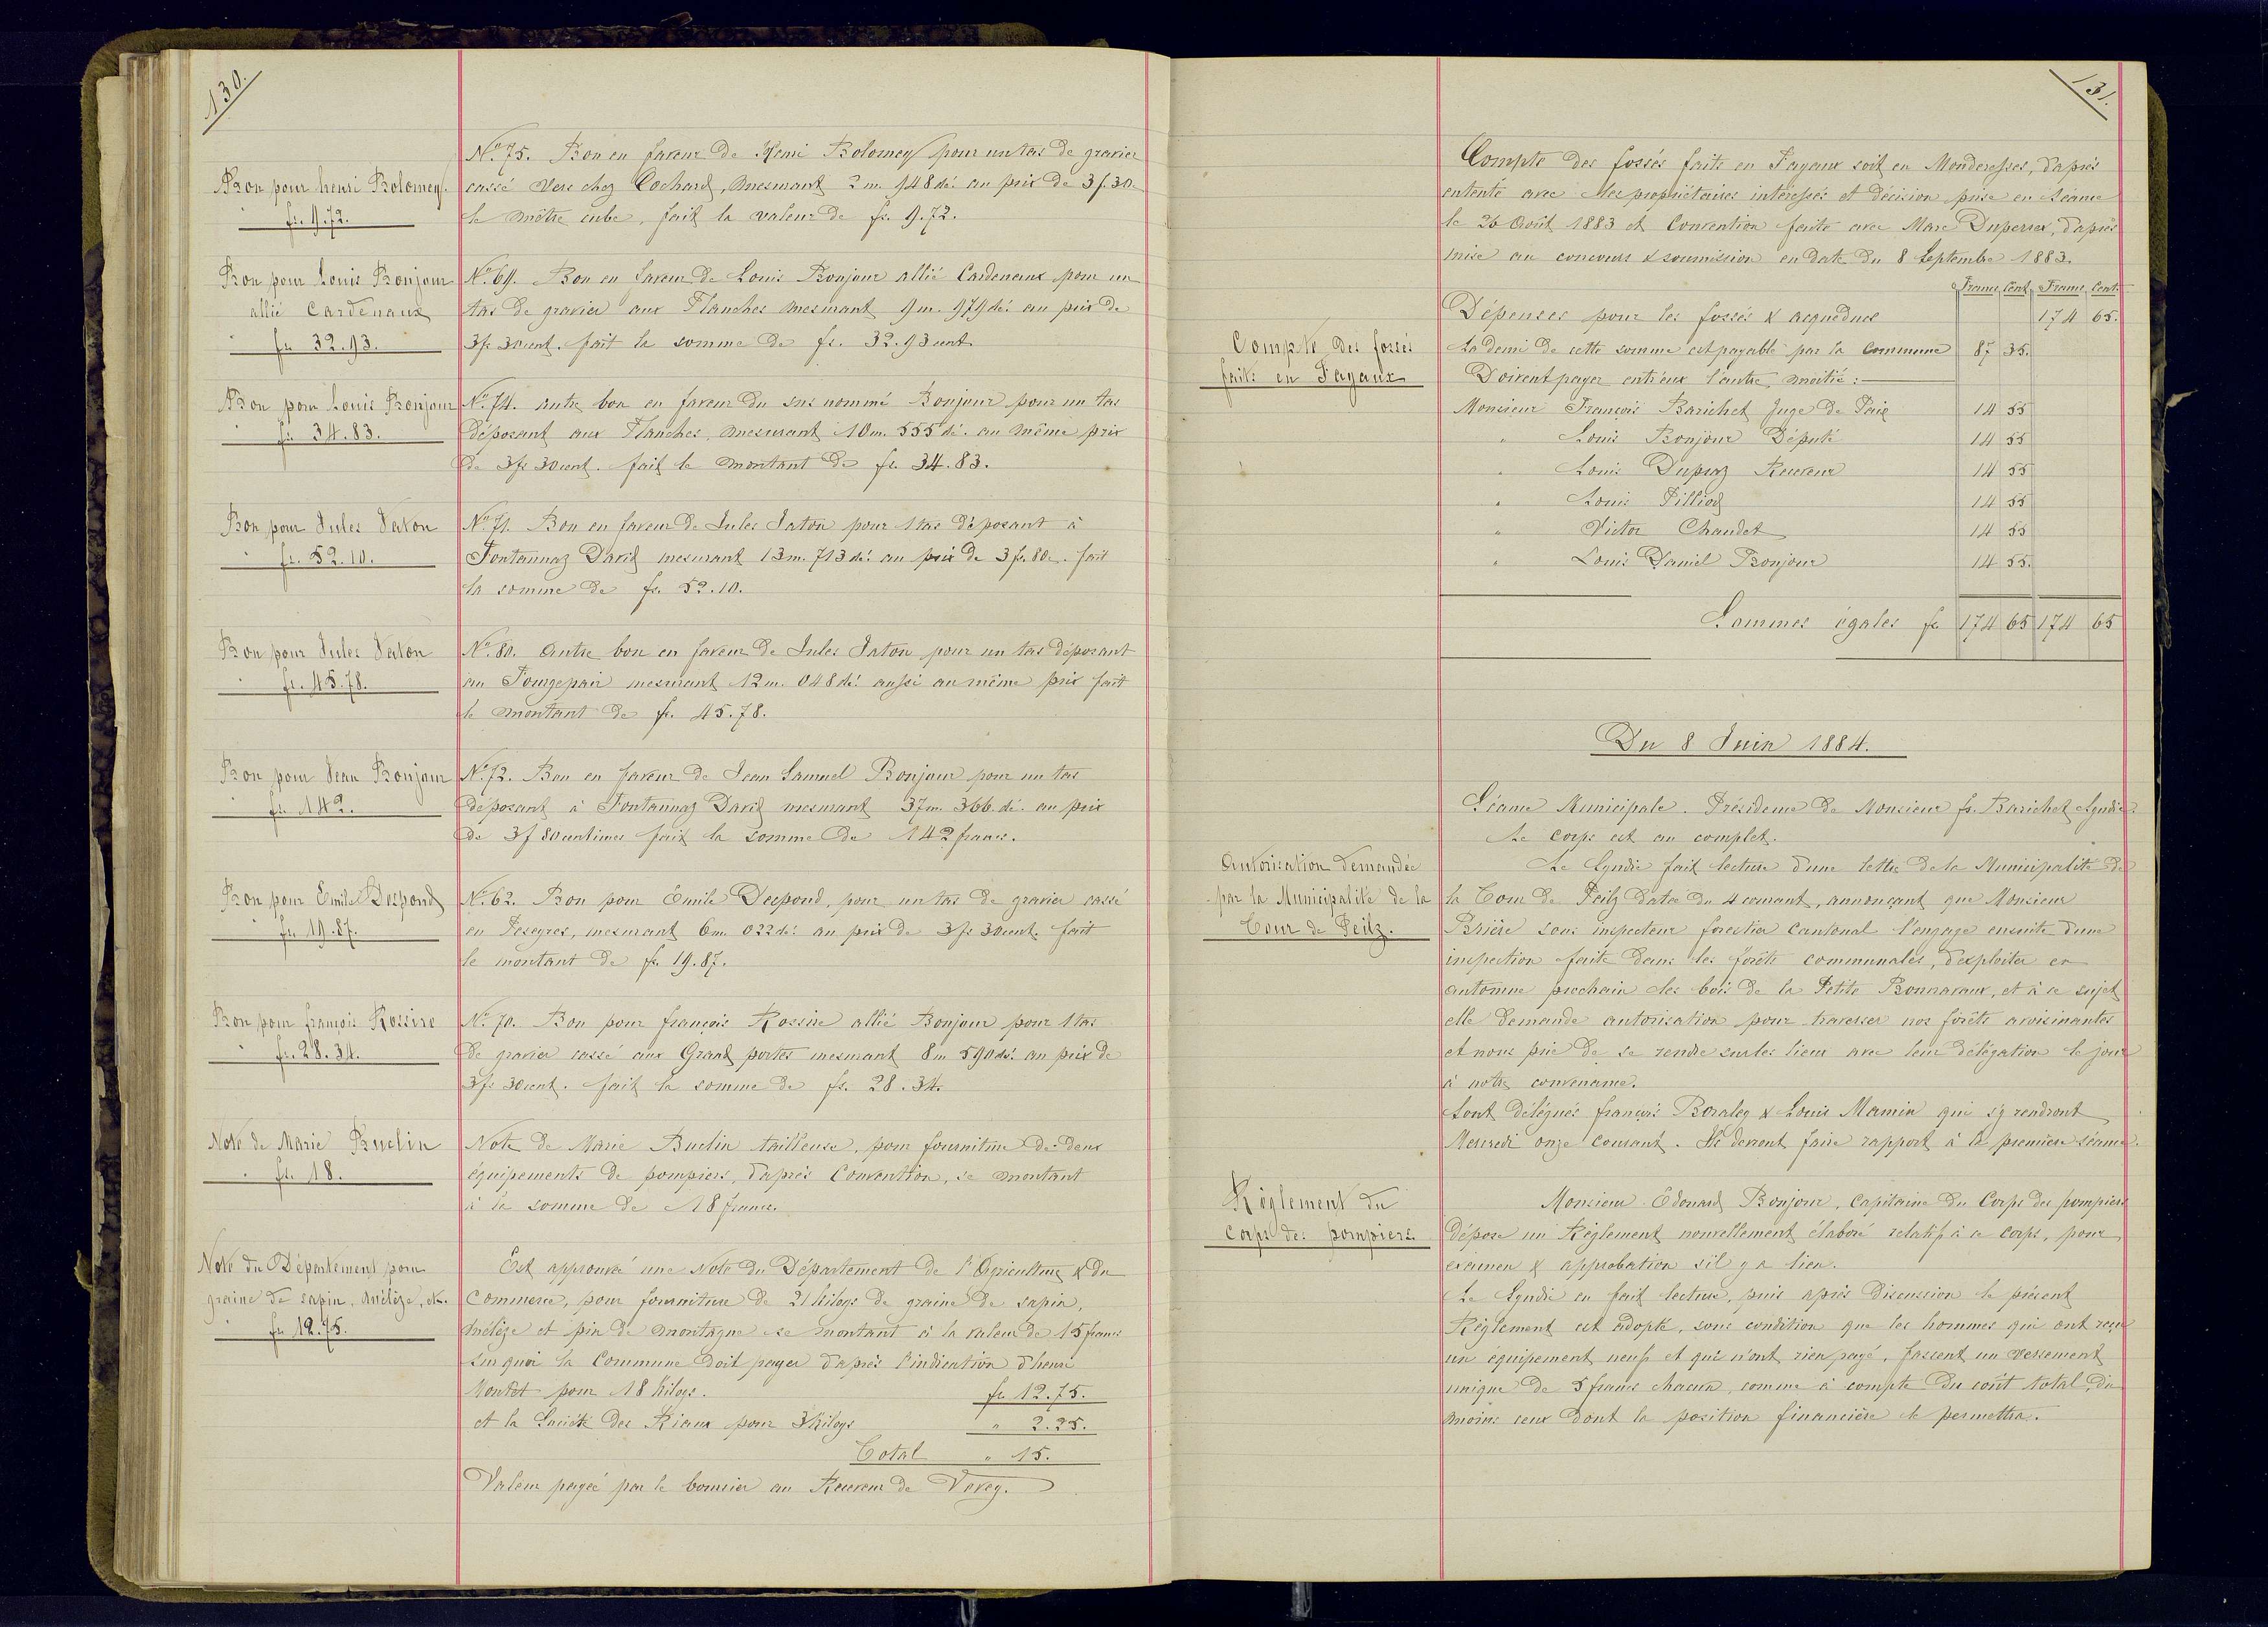 130.
Bon pour henri Bolomey.
fr. 9.72.
No. 75. Bon en faveur de Henri Bolomey pour un tas de gravier
cassé vers chez Cochard, mesurant 2 m. 948 dé. au prix de 3 f. 30
le mètre cube, fait la valeur de fr. 9.72.
Bon pour Louis Bonjour
allié Cardenaux
fr. 32.93.
No. 69. Bon en faveur de Louis Bonjour allié Cardenaux pour un
tas de gravier aux Planches mesurant 9 m. 979 dé. au prix de
3 fr. 30 cent. fait la somme de fr. 32.93 cent.
Bon pour Louis Bonjour
fr. 34.83.
No. 74. autre bon en faveur du sus nommé Bonjour pour un tas
déposant aux Planches, mesurant 10 m. 555 dé. au même prix
de 3 fr 30 cent. fait le montant de fr. 34.83.
Bon pour Jules Vaton
fr. 52.10.
No. 71. Bon en faveur de Jules Jaton pour 1 tas déposant à
Fontannaz David mesurant 13 m. 713 dé. au prix de 3 fr. 80 c. fait
la somme de fr. 52.10.
Bon pour Jules Vaton
fr. 45.78.
No. 80. Autre bon en faveur de Jules Jaton pour un tas déposant
au mesurant 12 m. 048 dé. aussi au même prix fait
le montant de fr. 45.78.
Bon pour Jean Bonjour
fr. 142.
No. 72. Bon en faveur de Jean Samuel Bonjour pour un tas
déposant à Fontannaz David mesurant 37 m. 366 dé. au prix
de 3 f 80 centimes fait la somme de 142 francs.
Bon pour Emile Despond
fr. 19.87.
No. 62. Bon pour Emile Despond, pour un tas de gravier cassé
en Peseyres, mesurant 6 m. 022 dé. au prix de 3 fr. 30 cent. fait
le montant de fr. 19.87.
Bon pour françois Rossire
fr. 28.34.
No. 70. Bon pour françois Rossire allié Bonjour pour 1 tas
de gravier cassé aux Grand portes mesurant 8 m 590 dé. au prix de
3 fr. 30 cent. fait la somme de fr. 28.34.
Note de Marie Buclin
fr. 18.
Note de Marie Buclin tailleuse, pour fourniture de deux
équipements de pompiers, d'après Convention, se montant
à la somme de 18 francs.
Note du Département pour
graine de sapin, mélèze, etc.
fr. 12.75.
Est approuvé une Note du Département de l'Agriculture & du
Commerce, pour fourniture de 21 kilogs de graine de sapin,
mélèze et pin de montagne se montant à la valeur de 15 francs
sur quoi la Commune doit payer d'après l'indication d'henri
Montet pour 18 kilogs. fr. 12.75.
et la Société des Riaux pour 3 kilogs " 2.25.
Total " 15.
Valeur payée par le boursier au Receveur de Vevey.
131.
Compte des fossés faits en Fayaux soit en Monderesses, d'après
entente avec les propriétaires intéressés et décision prise en séance
le 26 Août 1883 et Convention faite avec Marc Duperrex, d'après
mise au concours & soumission en date du 8 Septembre 1883.
Francs Cent. Francs Cent.
Compte des fossés
faits en Fayaux
Dépenses pour les fossés & acqueduc 174 65.
La demi de cette somme est payable par la Commune 87 35.
Doivent payer entr'eux l'autre moitié :
Monsieur François Barichet Juge de Paix 14 55
" Louis Bonjour Député 14 55
" Louis Dupraz Receveur 14 55
" Louis Pilliod 14 55
" Victor Chaudet 14 55
" Louis Daniel Bonjour 14 55.
Sommes égales fr. 174 65 174 65
Du 8 Juin 1884.
Séance Municipale. Présidence de Monsieur fs. Barichet Syndic.
Le corps est au complet.
Autorisation demandée
par la Municipalité de la
Tour de Peilz.
Le Syndic fait lecture d'une lettre de la Municipalité de
la Tour de Peilz datée du 4 courant, annonçant que Monsieur
Brière sous inspecteur forestier Cantonal l'engage ensuite d'une
inspection faite dans les forêts communales, d'exploiter en
automne prochain les bois de la Petite Bonnavaux, et à ce sujet
elle demande autorisation pour traverser nos forêts avoisinantes
et nous prie de se rendre sur les lieux avec leur délégation le jour
à notre convenance.
Sont délégués françois Boraley & Louis Mamin qui s'y rendront
Mercredi onze courant. Ils devront faire rapport à la première séance.
Règlement du
Corps des pompiers.
Monsieur Edouard Bonjour, Capitaine du Corps des pompiers
dépose un Règlement nouvellement élaboré relatif à ce corps, pour
examen & approbation s'il y a lieu.
Le Syndic en fait lecture, puis après discussion le présent
Règlement est adopté, sous condition que les hommes qui ont reçu
un équipement neuf et qui n'ont rien payé, fassent un versement
unique de 5 francs chacun, comme à compte du coût total, du
moins ceux dont la position financière le permettra.